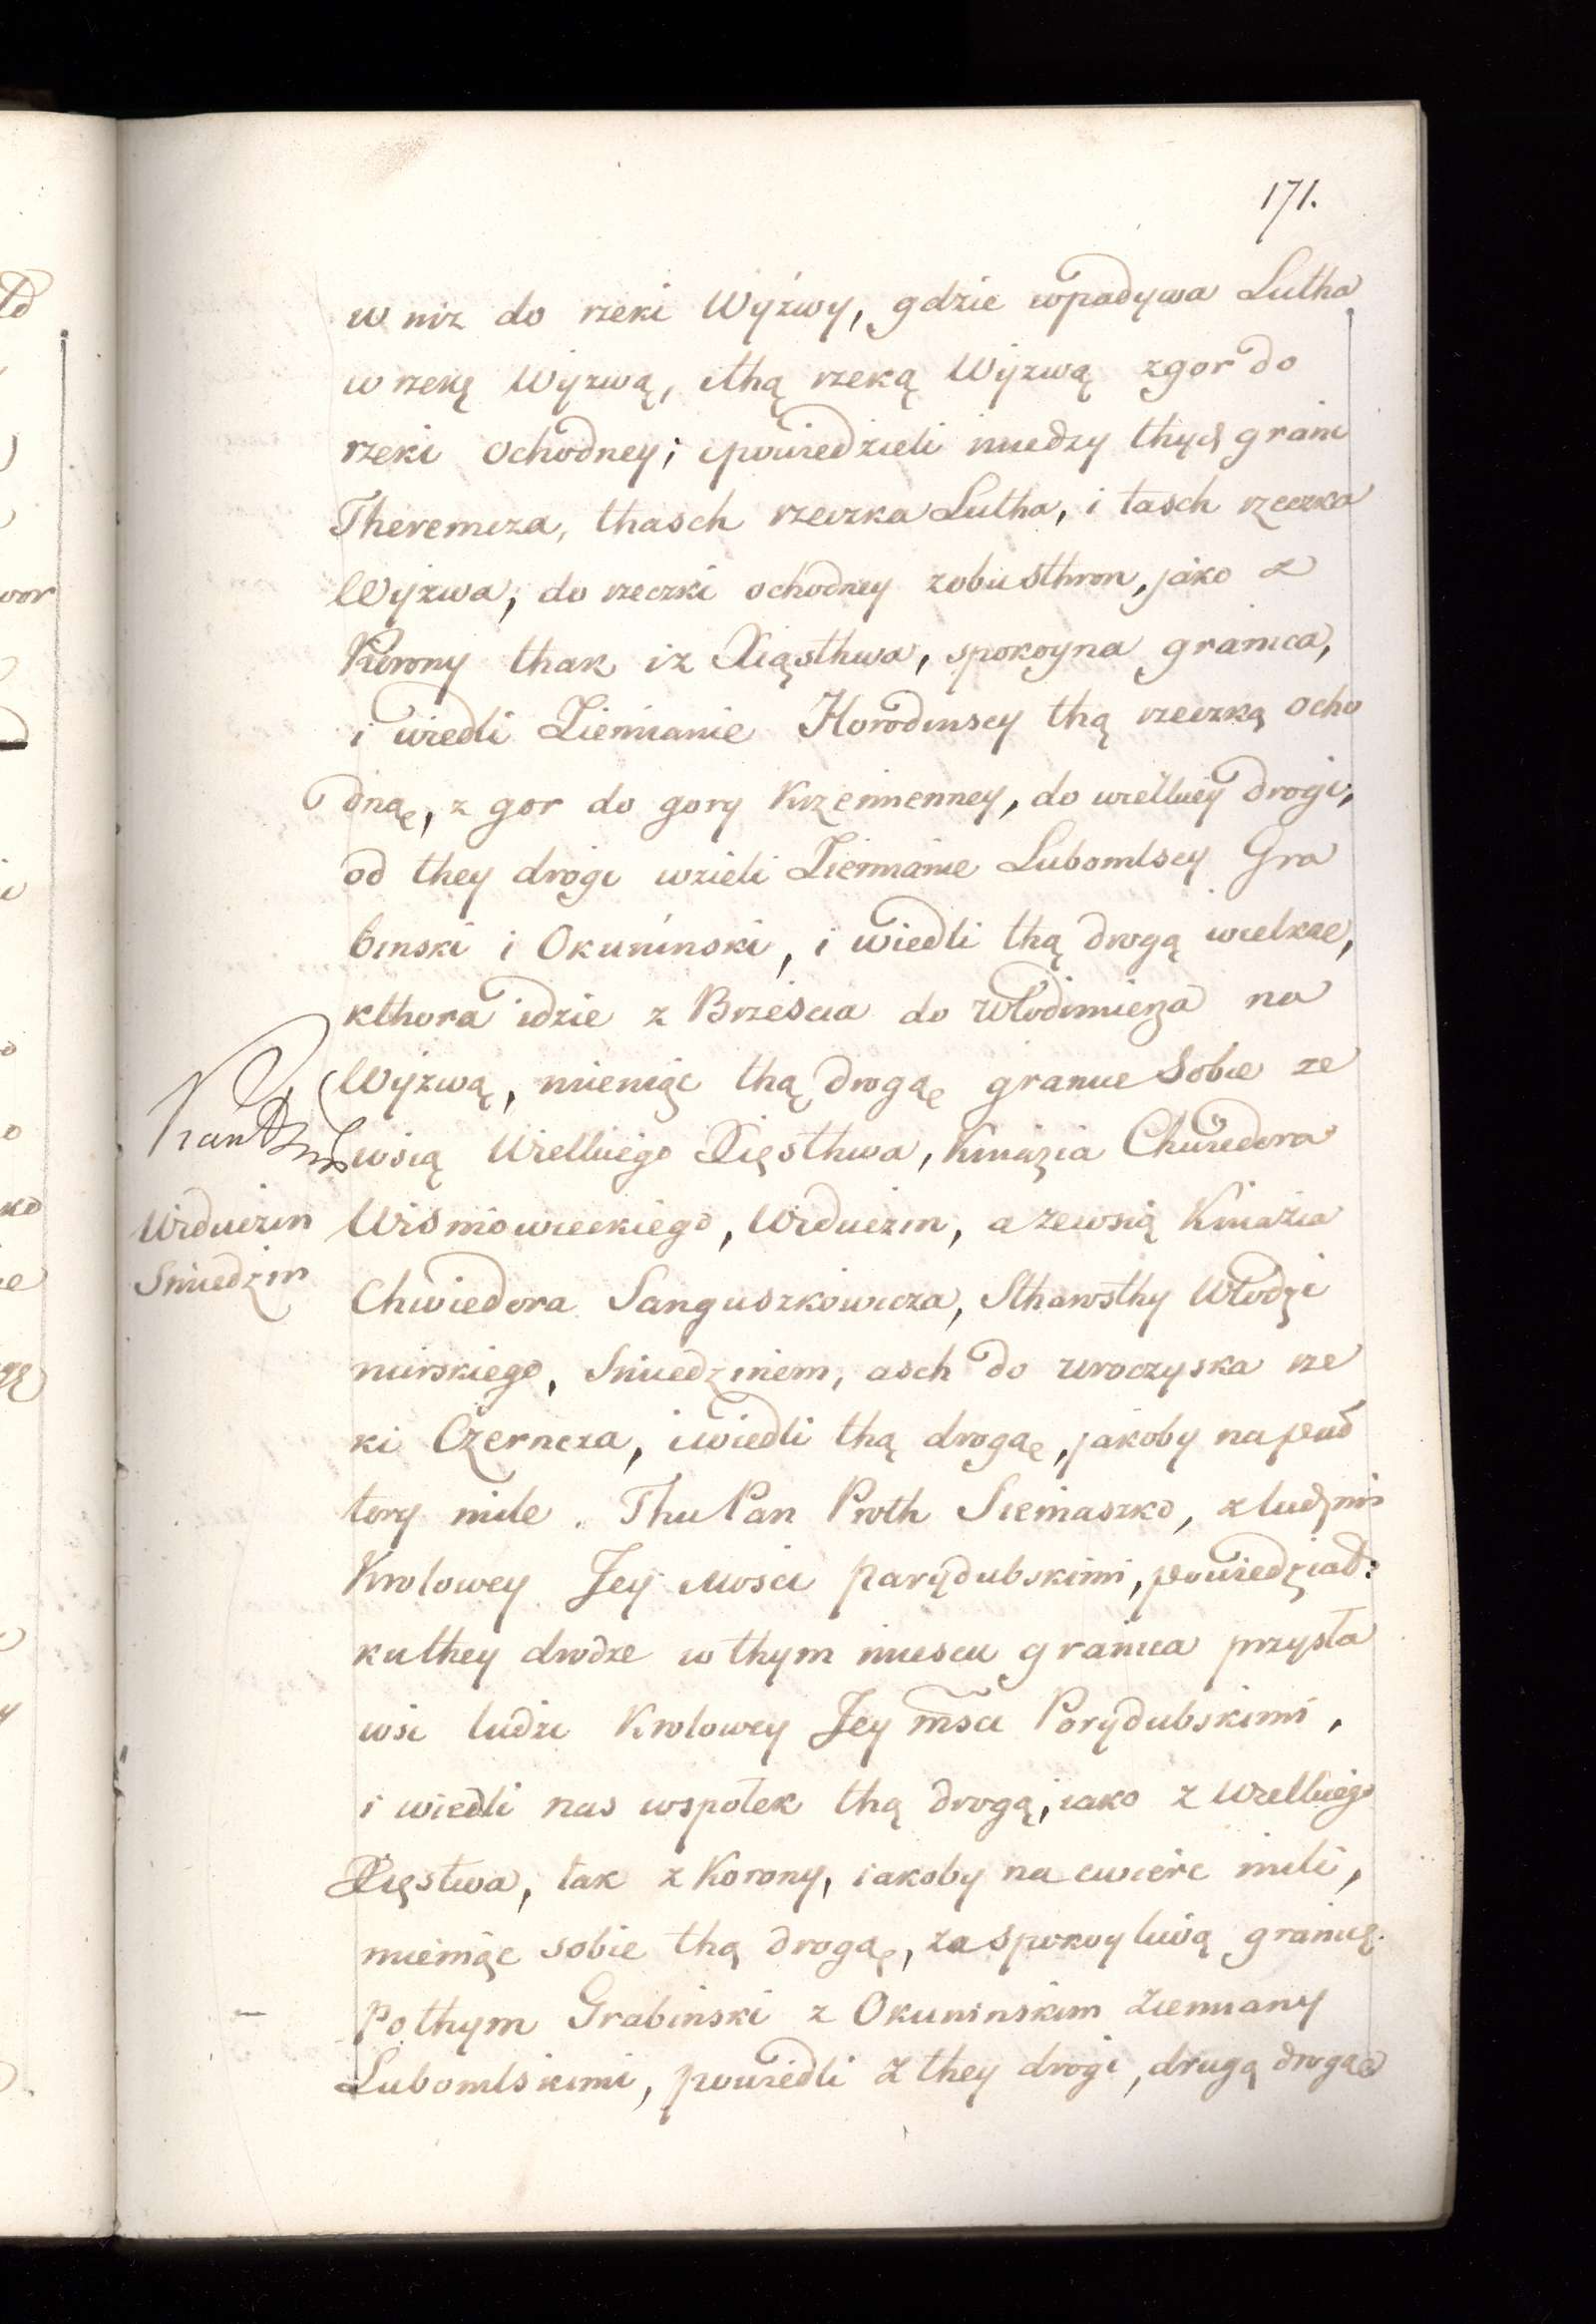 171.
w niz do rzeki Wyżwy, gdzie wpadywa Lutha
w rzekę Wyzwą, ithą rzeką Wyzwą zgor do
rzeki Ochodney; ipowiedzieli miedzy thych granic
Theremcza, thasch rzeczka Lutha, i tasch rzeczka
Wyzwa, do rzeczki ochodney zobusthron, jako z
Korony thak iz Xięsthwa, spokoyna granica,
i wiedli Ziemianie Horodensey thą rzeczką ocho
dnąę, z gor do gory Krzemienney, do wielkiey drogi,
od they drogi wzieli Ziemianie Lubomlscy Gra
binski i Okuninski, i wiedli thą drogą wielkae,
kthora idzie z Brzescia do Włodimierza na
Wyzwą, mieniąc thą drogąę granice Sobie ze
wsią Wielkiego Xięsthwa, Kniazia Chwiedora
Wisniowieckiego, Widuczin, a zewsią Kniazia
Widuczin
Sniedzin
Chwiedora Sanguszkowicza, Stharosthy Włodzi
mirskiego, Sniedziniem, asch do uroczyska rze
ki Czerncza, iwiedli thą drogąę, jakoby na puł
tory mile. Thu Pan Proth Siemaszko, z ludzmi
Krolowey Jey Mosci parydubskimi, powiedział:
ku they drodze w thym miescu granica przysta
wsi ludzi Krolowey Jey msci Porydubskimi,
i wiedli nas wspołek thą drogą, iako z Wielkiego
Xięstwa, tak z Korony, iakoby na cwierc mili,
mieniąc sobie thą drogąę, za spokoyliwą granicę.
Pothym Grabinski z Okuninskim Ziemiany
Lubomlskimi, powiedli z they drogi, drugą drogąę